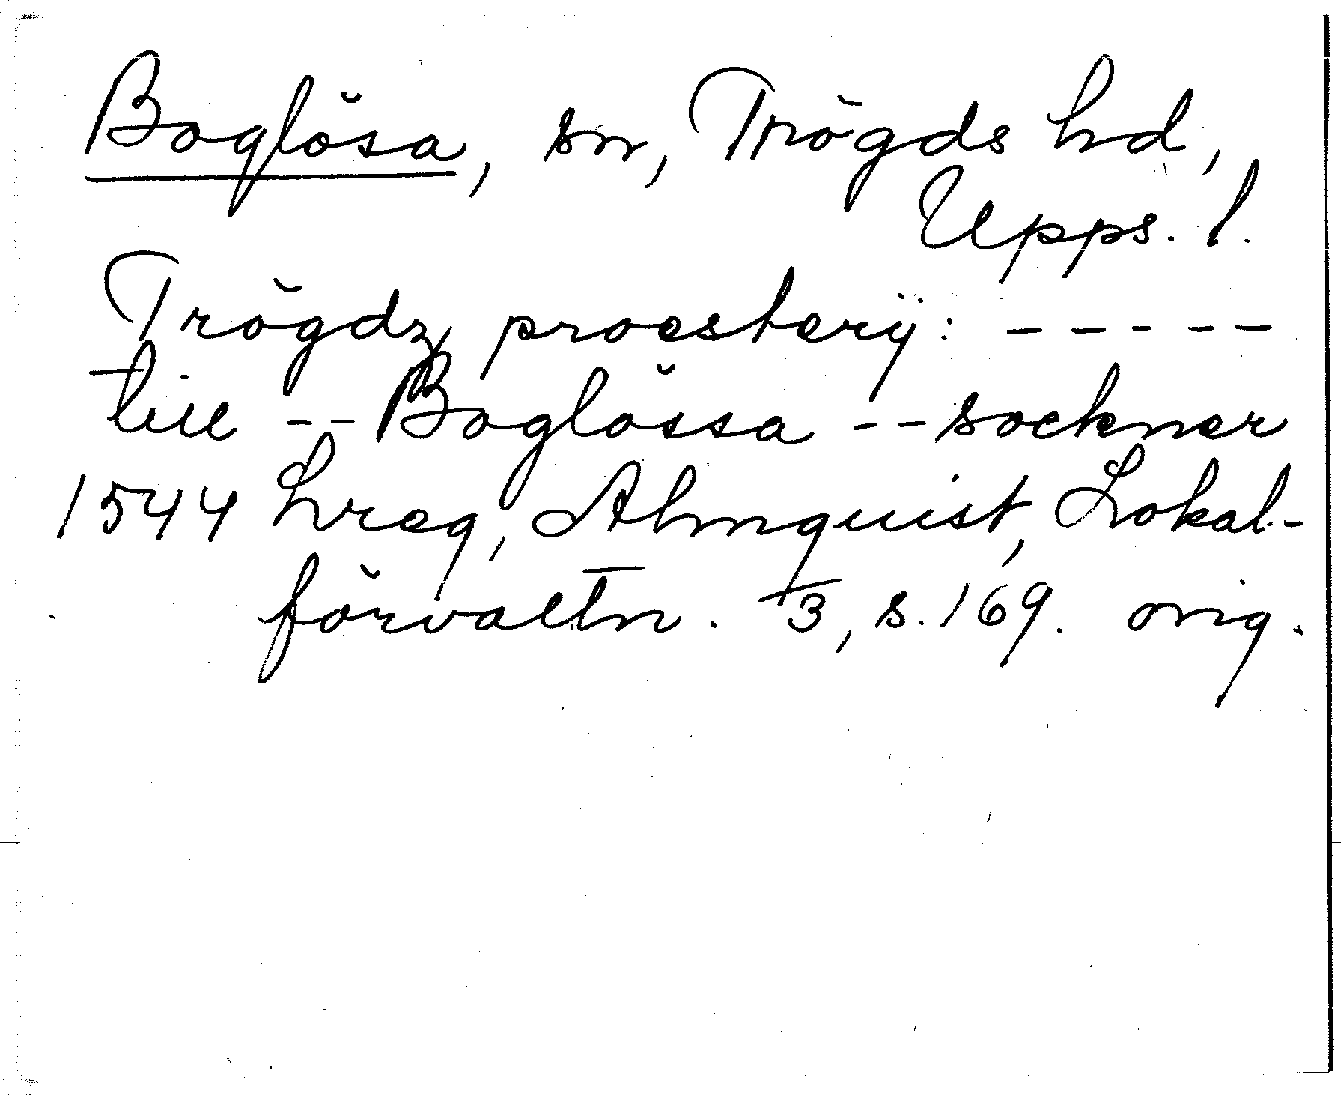 Boglösa, sn, Trögds hd,
Upps. l.
Trögdz proesterÿ: -----
till -- Boglössa -- sockner
1544 hreg, Almquist, Lokal-
förvaltn. 3, s. 169. orig.